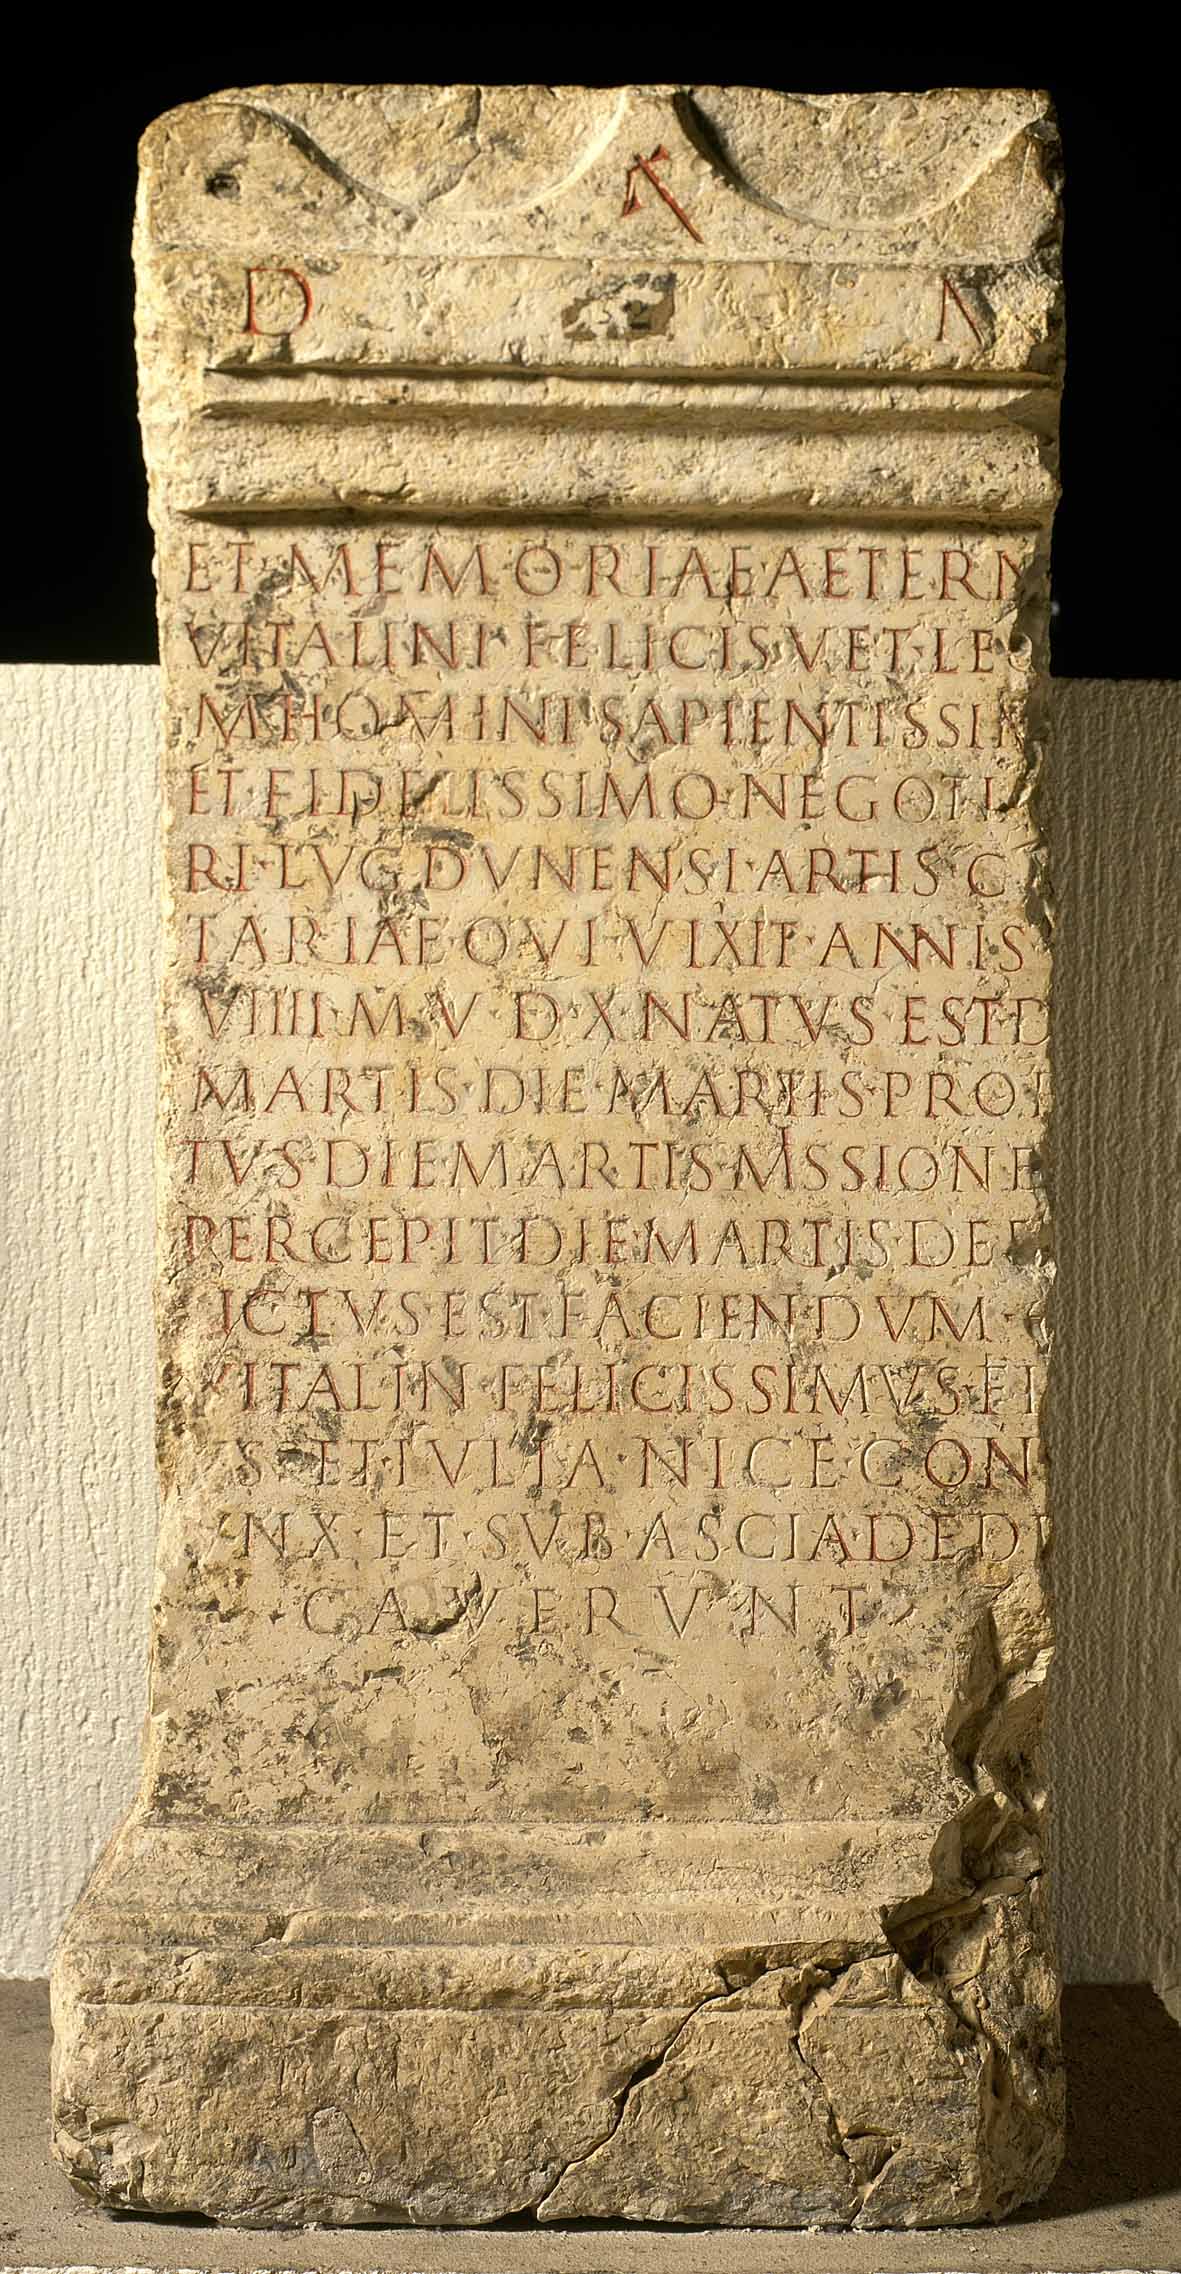 D M
ET MEMORIAE AETERN
VITALINI FELICIS VET·LEG
M HOMINI SAPIENTISSIM
ET FIDELISSIMO NEGOTI
RI·LVGDVNENSI·ARTIS C
TARIAE QVI VIXIT ANNIS
VIIII M V D X NATVS EST D
MARTIS·DIE·MARTIS·PROF
TVS DIE MARTIS MISSIONE
PERCEPIT DIE MARTIS DEF
ICTVS EST FACIENDVM
VITALIN FELICISSIMVS FI
S ET IVLIA·NICE CON
NX ET SVB·ASCIA DEDI
CAVERVNT